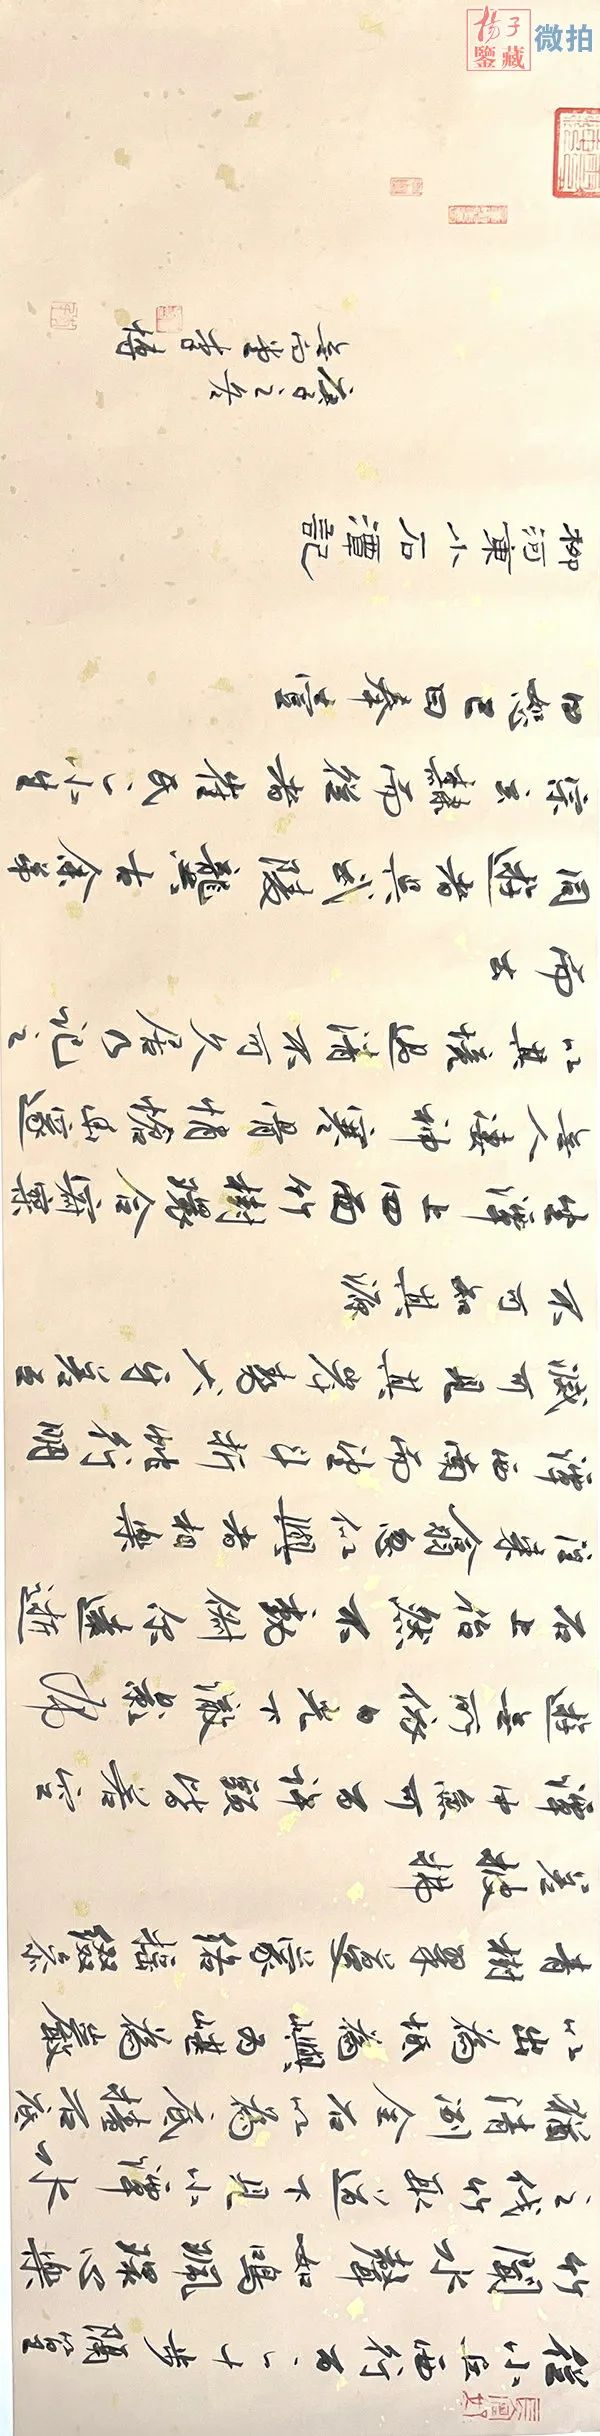 從小丘西行百二十步隔篁
竹聞水聲如鳴珮環心樂
之伐竹取道下見小潭水
猶清冽全石以為底石底
以出為坻為嶼為嵁為巖
青樹翠蔓蒙絡搖綴參
差披拂
潭中魚可百許頭皆若空
遊無所依日光下澈影布
石上佁然不動俶尔遠逝
往來翕忽似與者相樂
潭西南而望斗折蛇行明
滅可見其岸勢犬牙差互
不可知其源
坐潭上四面竹樹環合寂寥
無人淒神寒骨悄愴幽邃
以其境過清不可久居乃記之
而去
同遊者吳武陵龔古余弟
宗玄隸而從者崔氏二小生
曰恕己曰奉壹
柳河東小石潭記
之冬
揚子鑒藏
微拍